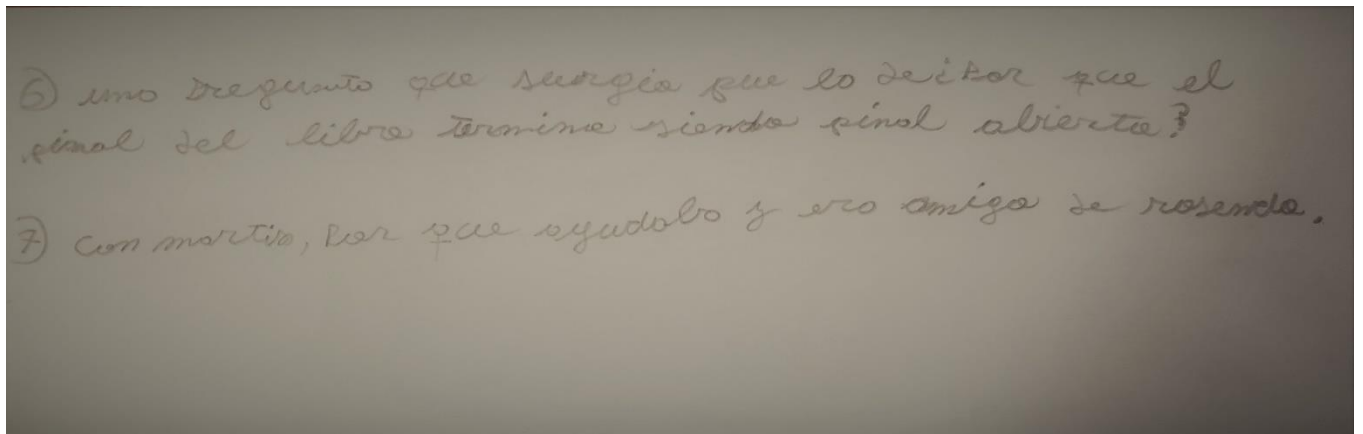 ⑥ una pregunta que surgio fue lo de ¿por que el
final del libro termina siendo final abierto?
⑦ con martin, por que ayudaba y era amigo de rosendo.